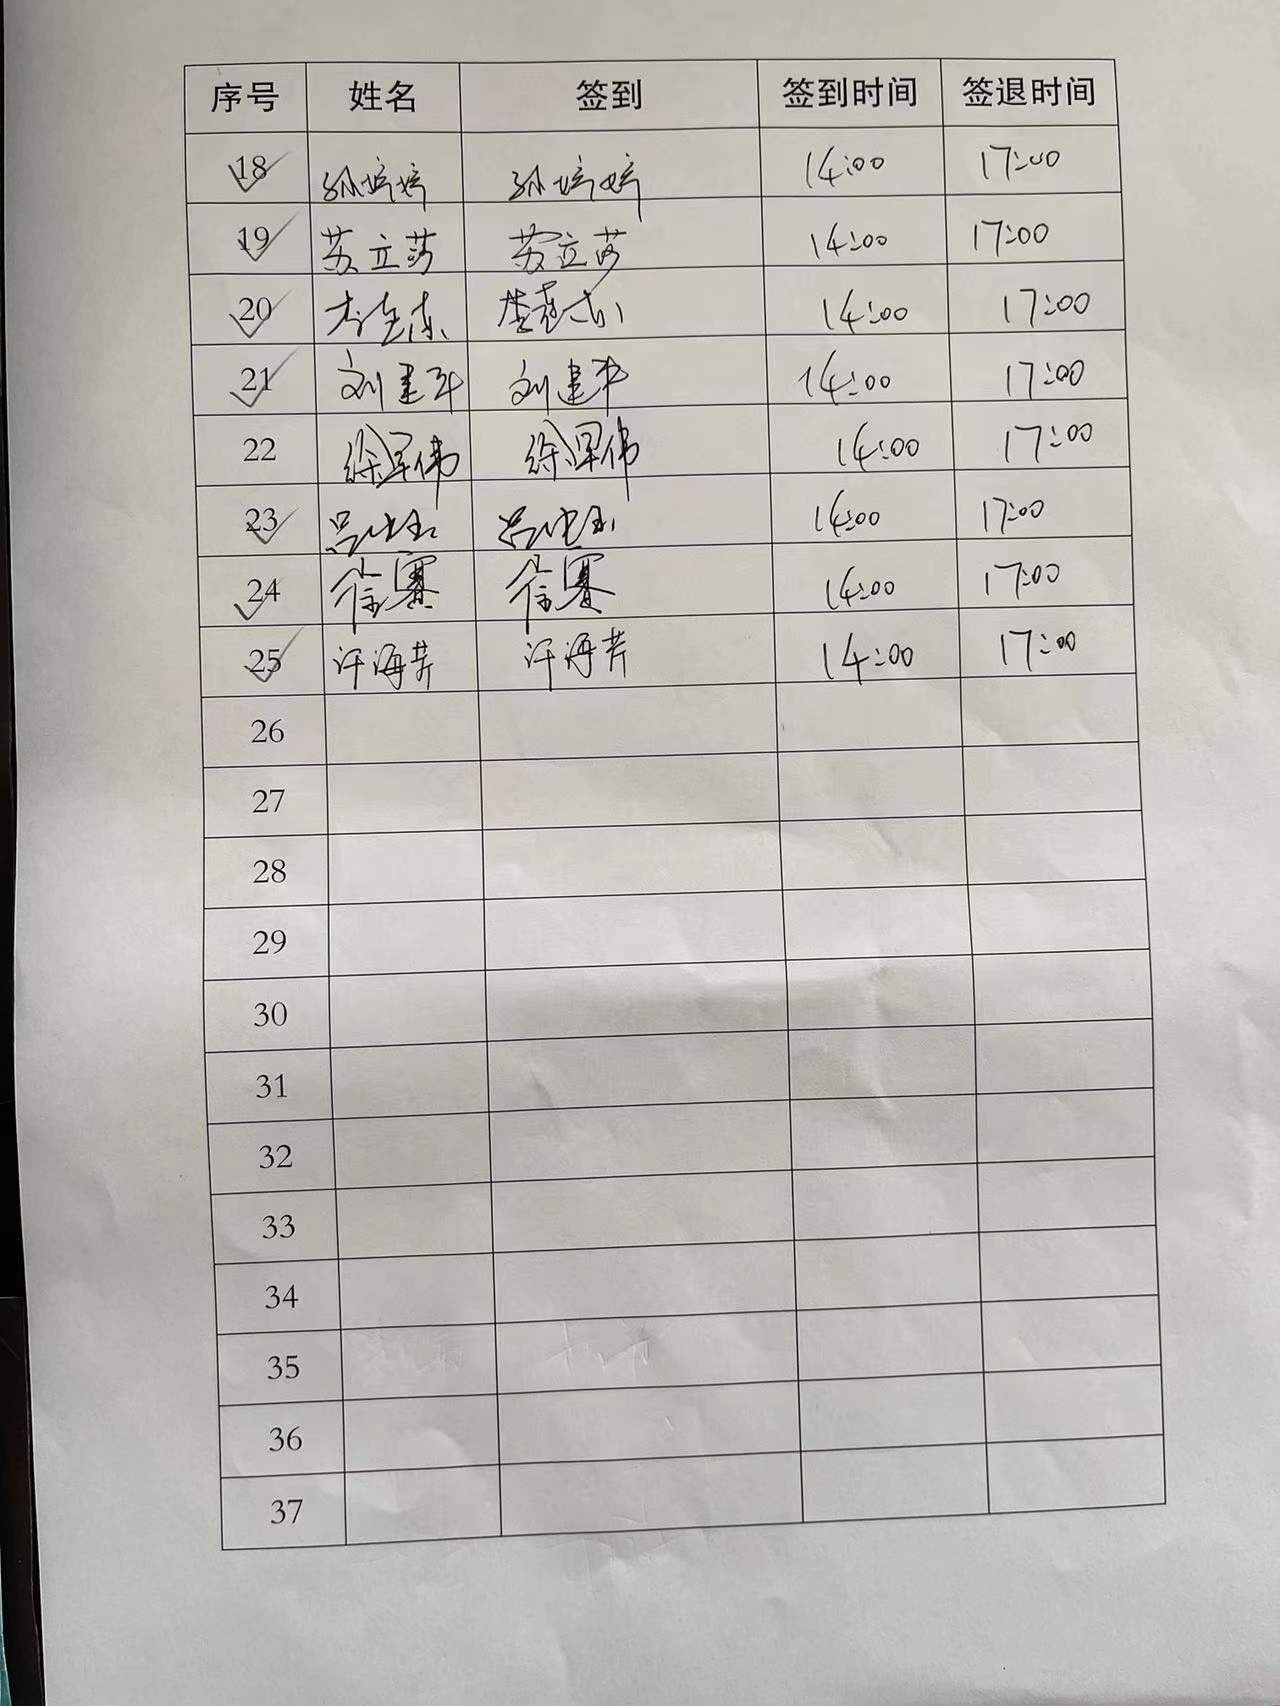 序号 姓名 签到 签到时间 签退时间
18 孙婷婷 孙婷婷 14:00 17:00
19 苏立莎 苏立莎 14:00 17:00
20 14:00 17:00
21 刘建平 刘建平 14:00 17:00
22 徐军伟 徐军伟 14:00 17:00
23 14:00 17:00
24 徐赛 徐赛 14:00 17:00
25 汗海芹 汗海芹 14:00 17:00
26
27
28
29
30
31
32
33
34
35
36
37